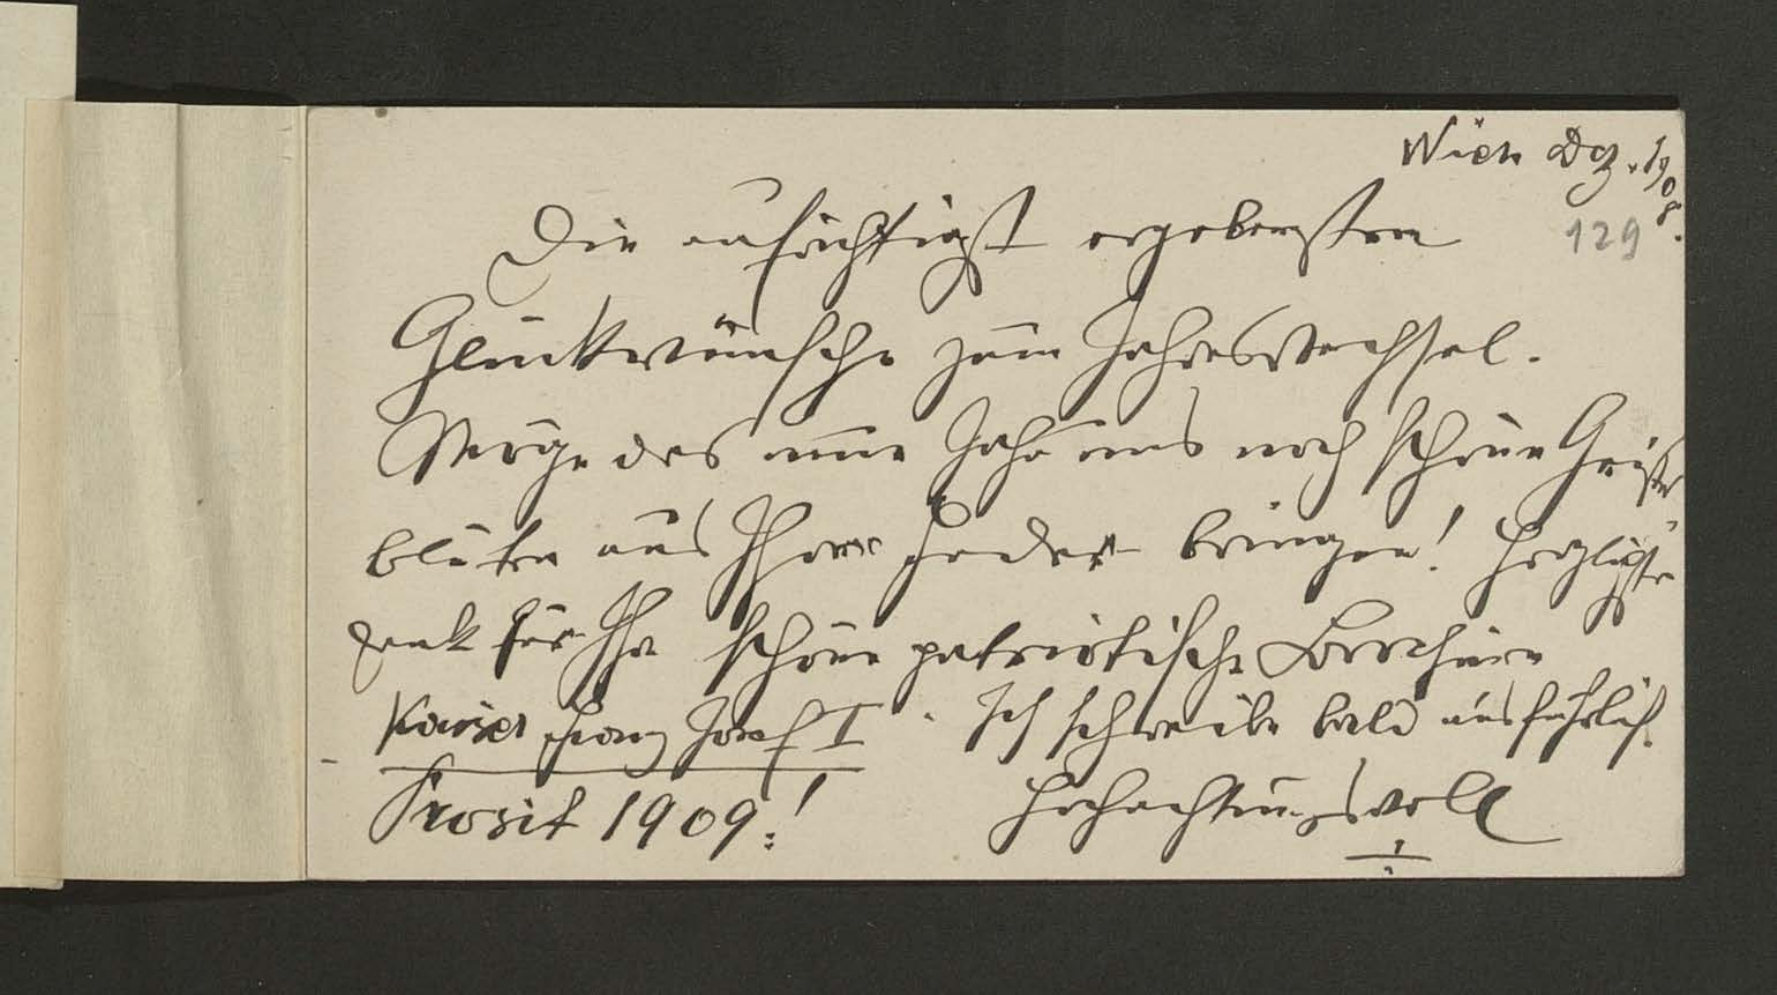 Wien Dez. 1908.
129
Die aufrichtigst ergebensten
Glückwünsche zum Jahreswechsel.
Möge das neue Jahr uns noch schöne Geistes
blüten aus Ihrer Feder bringen! Herzlichste
Dank für Ihre schöne patriotische Broschüre
Kaiser Franz Josef I. Ich schreibe bald ausführlich.
Prosit 1909!
Hochachtungsvoll